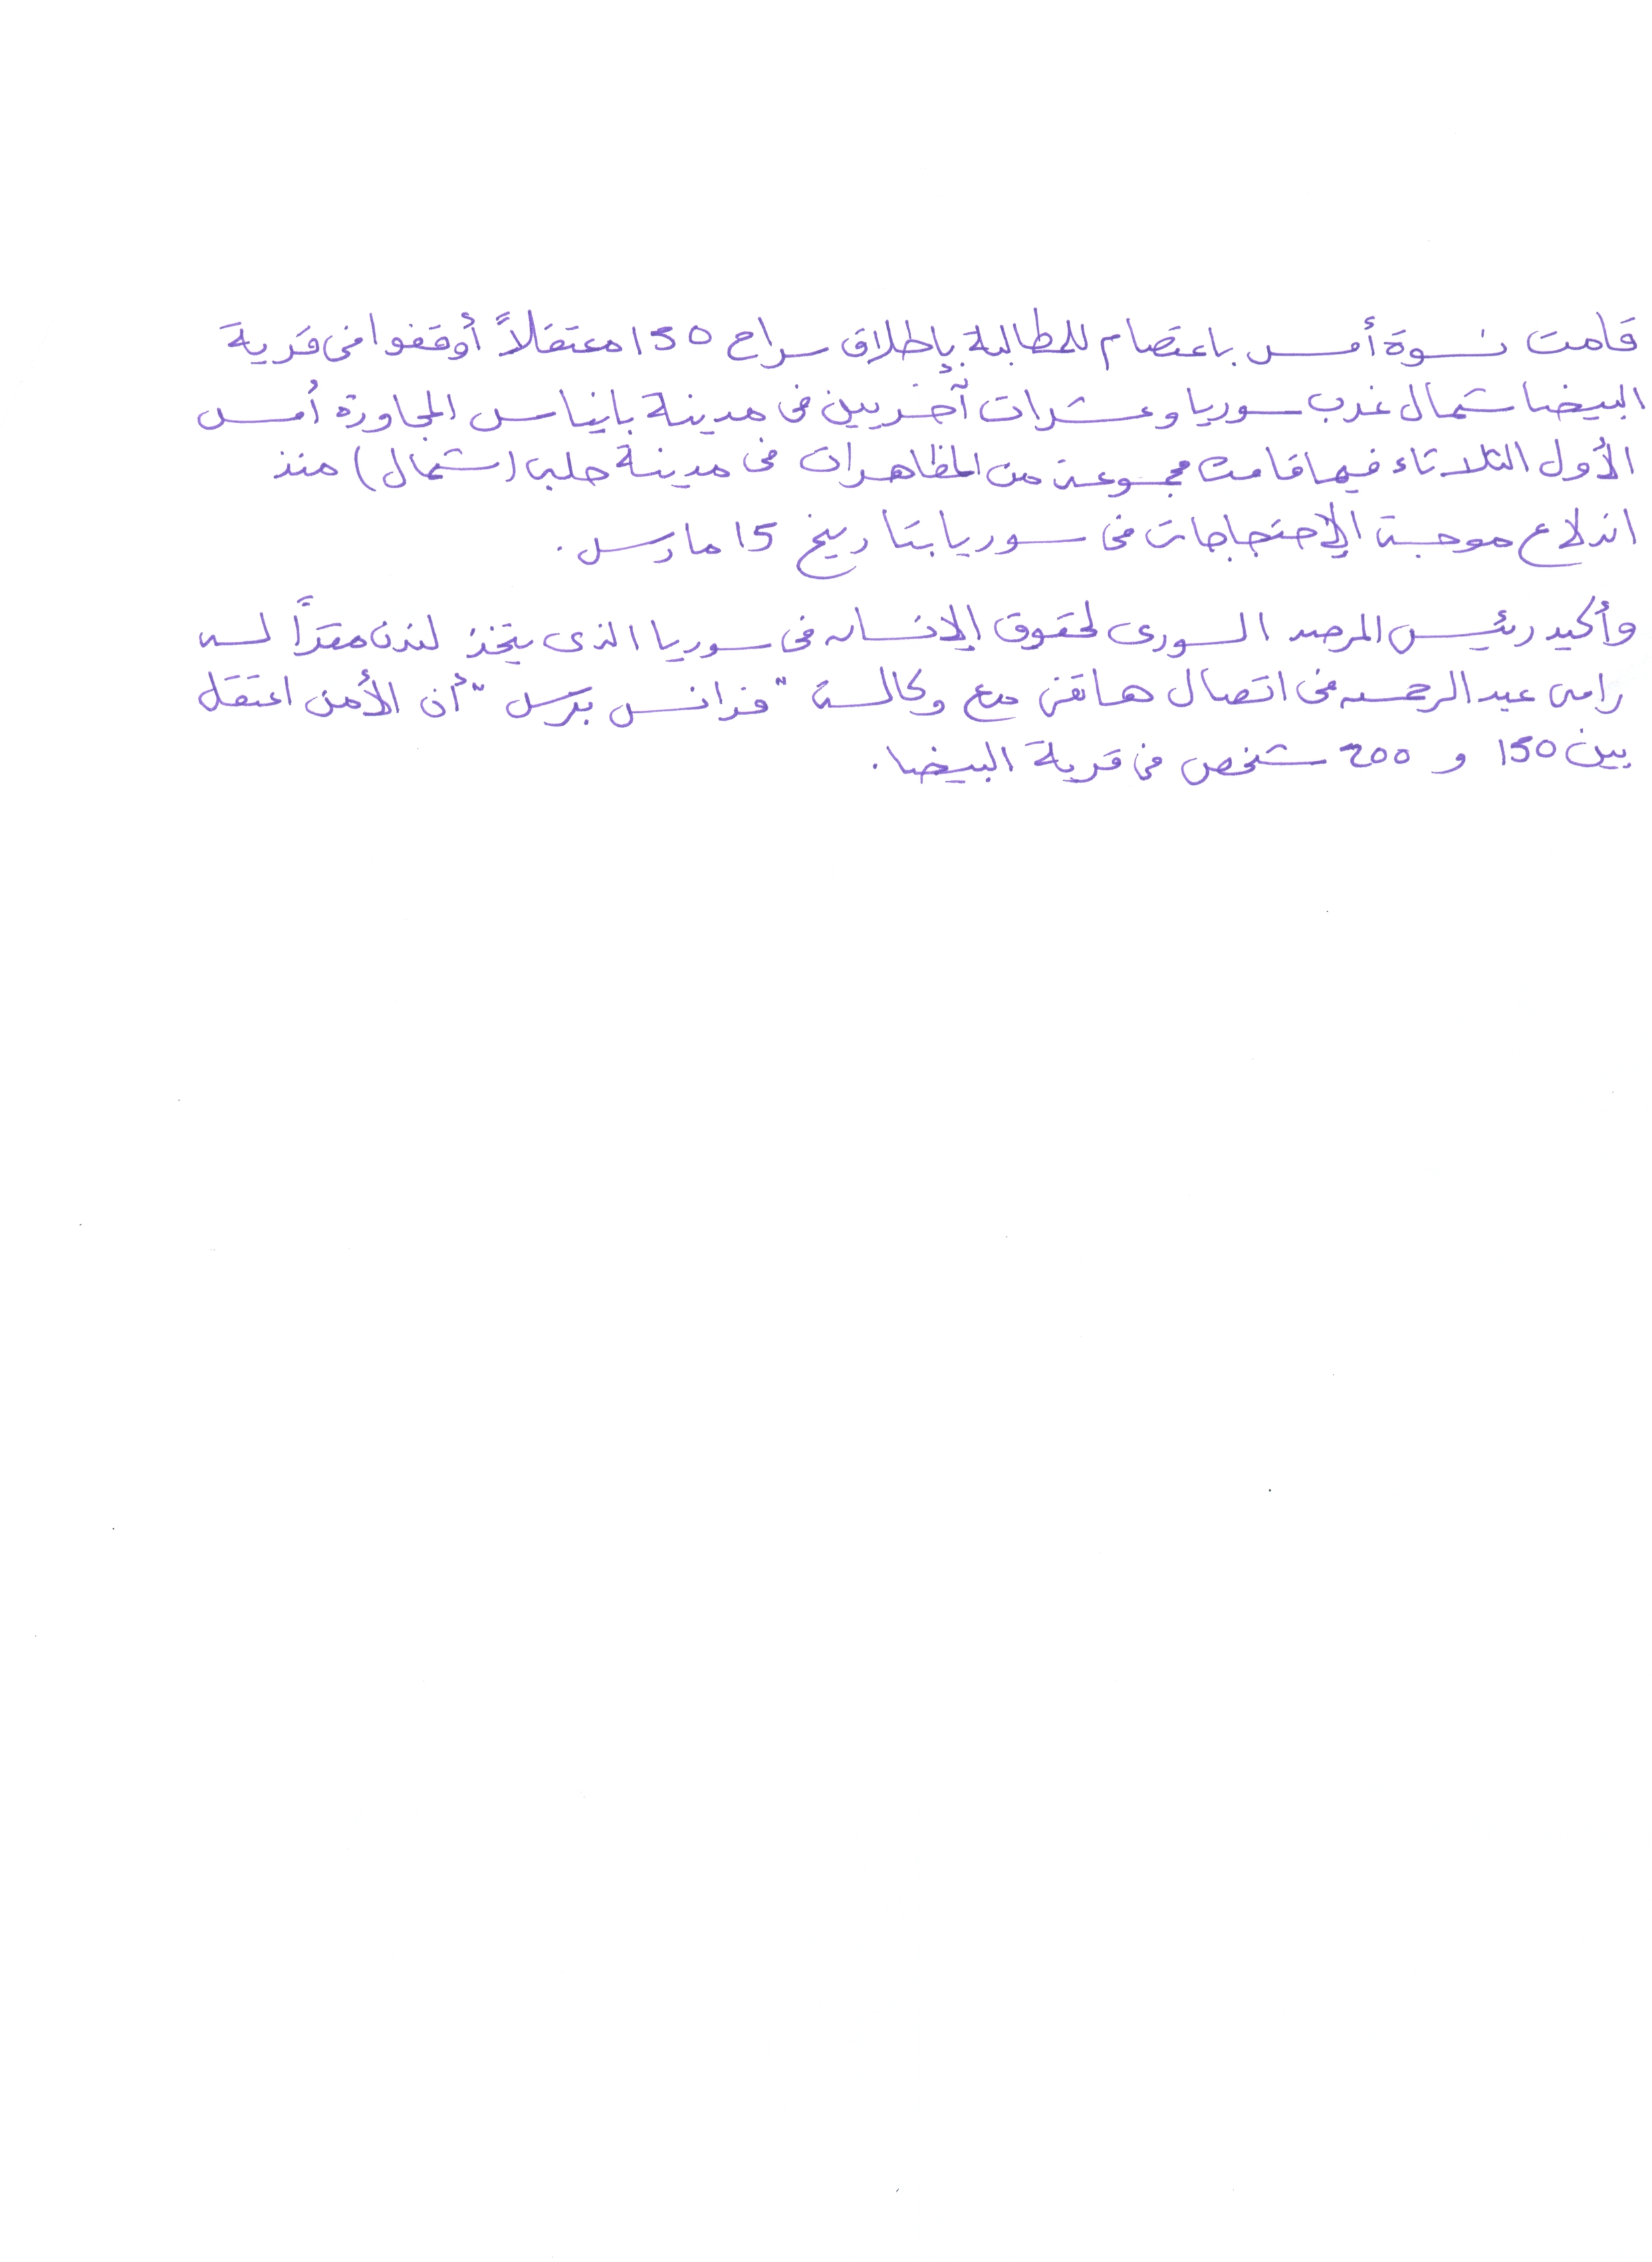 قامت نسوة أمس باعتصام للمطالبة بإطلاق سراح 150 معتقلاً أوقفوا فى قرية
البيضا شمال غرب سوريا وعشرات آخريين فى مدينة بانياس المجاورة أمس
الأول الثلاثاء فيما قامت مجموعة من المظاهرات فى مدينة حلب (شمال) منذ
اندلاع موجة الإحتجاجات فى سوريا بتاريخ 15 مارس.
وأكيد رئيس المرصد السورى لحقوق الإنسان فى سوريا الذى يتخذ لندن مقرًا له
رامى عبد الرحمن فى اتصال هاتفى مع وكالة "فرانس برس" أن الأمن اعتقل
بين 150 و 200 شخص فى قرية البيضا.